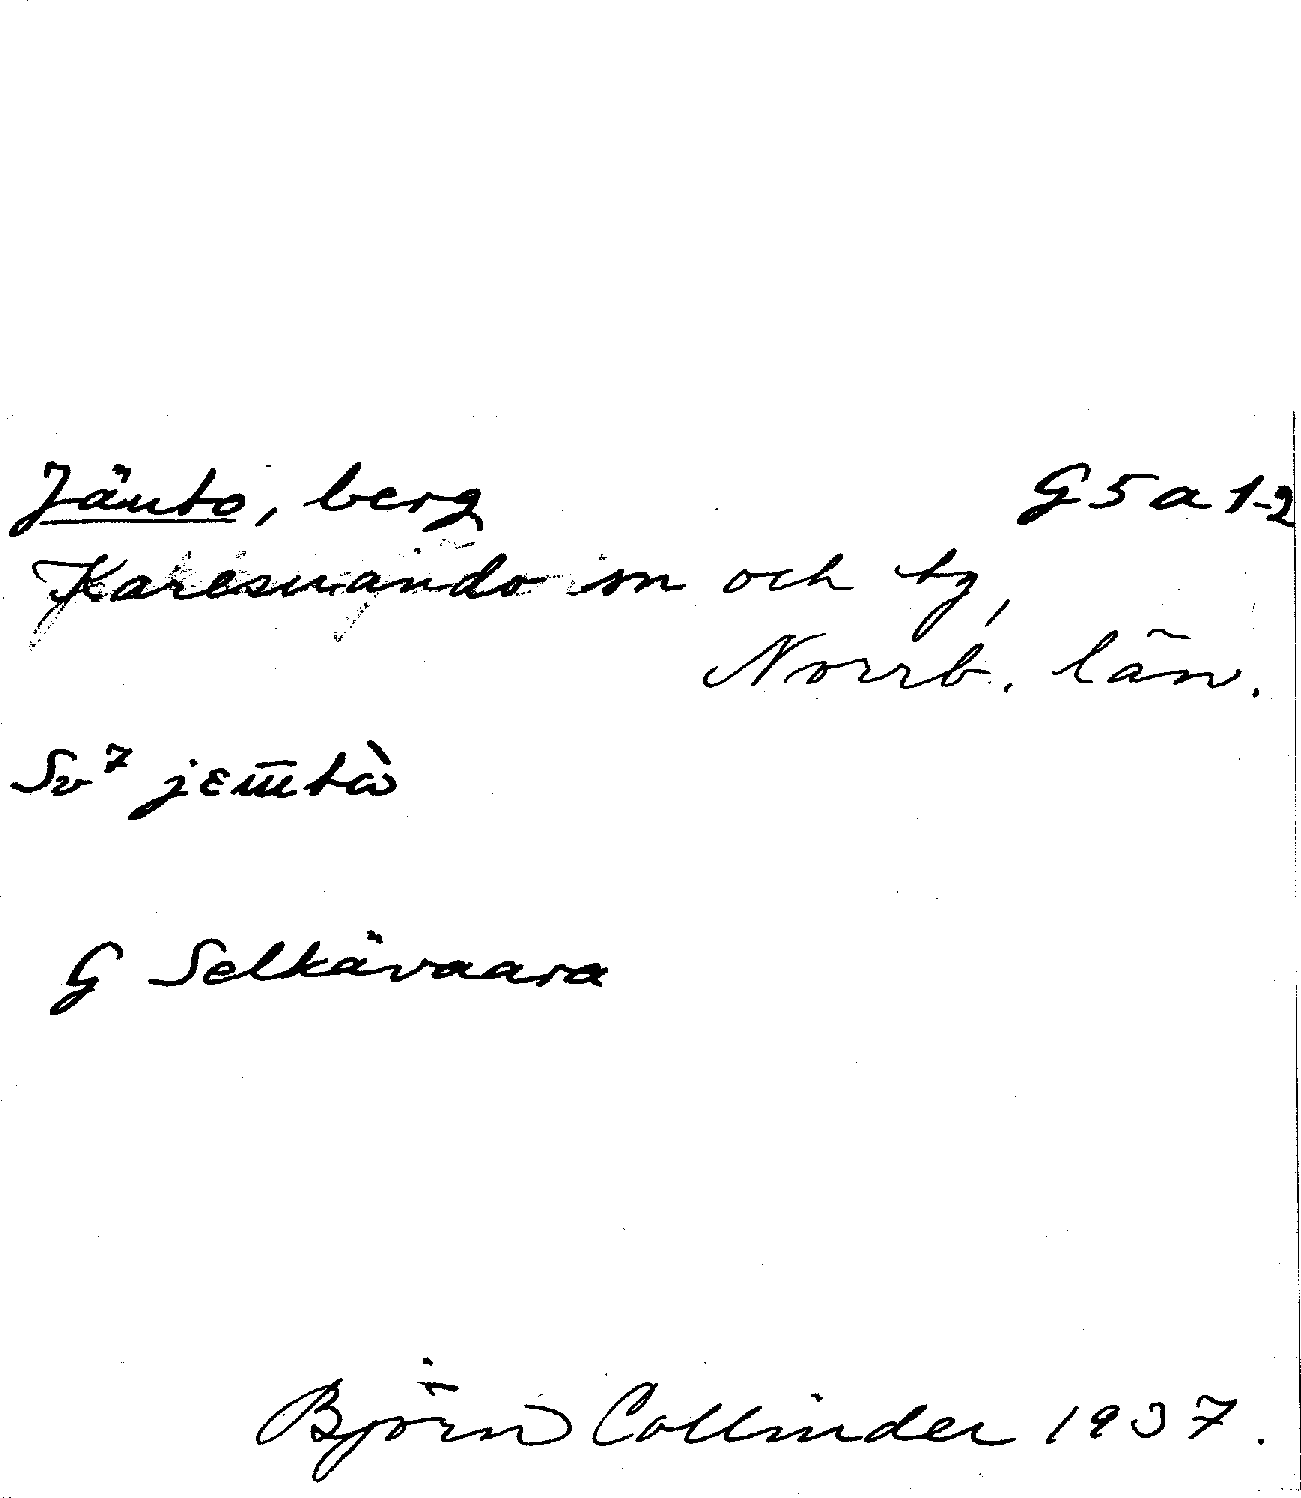 Jänto, berg G5a1-2
Karesuando sn och tg,
Norrb. län.
Sv⁷
G Selkävaara
Björn Collinder 1937.